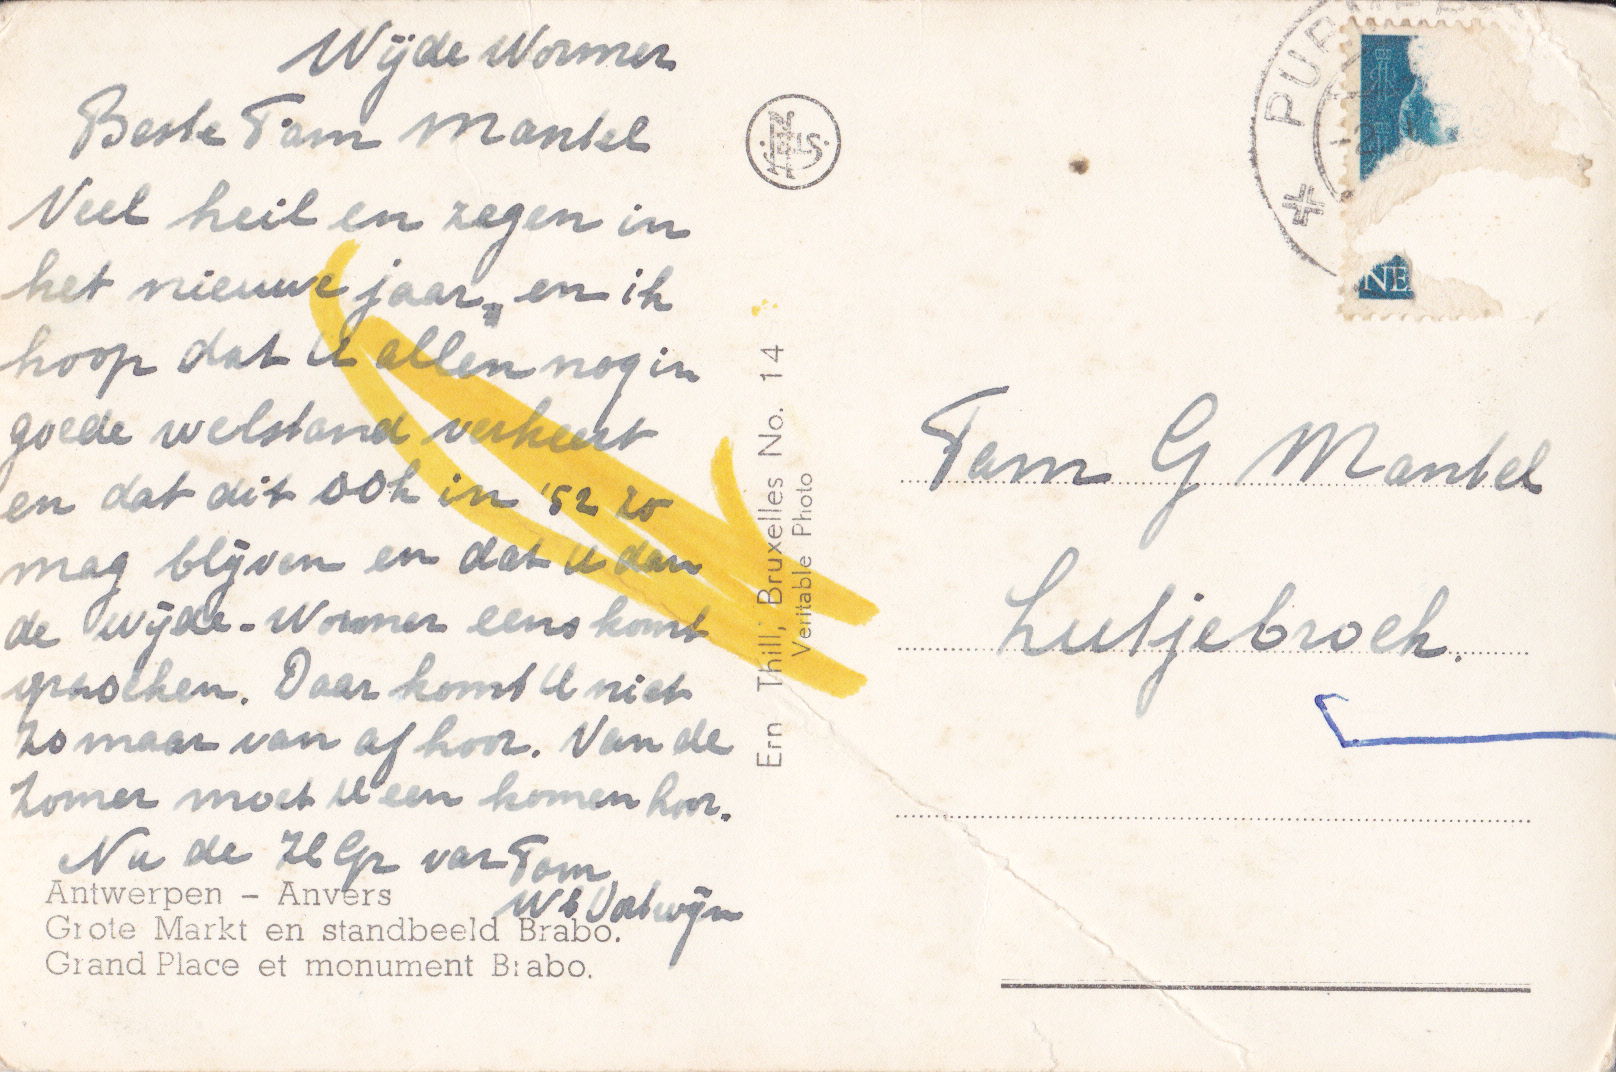 Wijde Wormer
Beste Fam Mantel
Veel heil en zegen in
het nieuwe jaar, en ik
hoop dat U allen nog in
goede welstand verkeert
en dat dit ook in '52 zo
mag blijven en dat U dan
de Wijde-Wormer eens komt
Daar komt U niet
zo maar van af hoor. Van de
zomer moet U een komen hoor.
Nu de Gr van Fam
Antwerpen – Anvers
Grote Markt en standbeeld Brabo.
Grand Place et monument Brabo.
Ern Thill, Bruxelles No. 14
Veritable Photo
PUR
NE
Fam G Mantel
Lutjebroek.